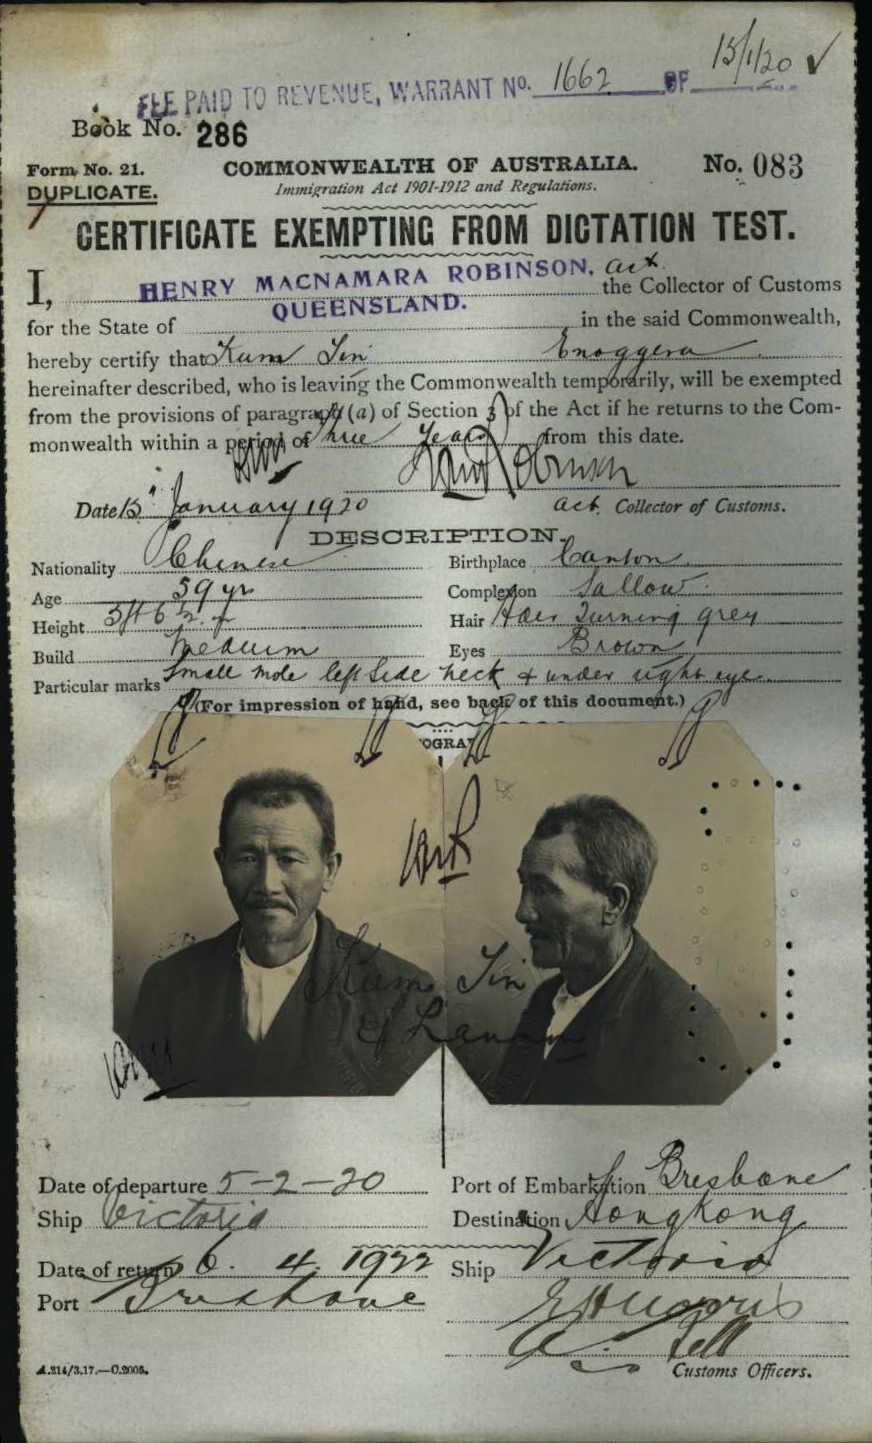 FEE PAID TO REVENUE, WARRANT No. 1662 OF 15/1/20 ✓
Book No. 286
Form No. 21. COMMONWEALTH OF AUSTRALIA. No. 083
DUPLICATE. Immigration Act 1901-1912 and Regulations.
CERTIFICATE EXEMPTING FROM DICTATION TEST.
I, HENRY MACNAMARA ROBINSON, act. the Collector of Customs
for the State of QUEENSLAND. in the said Commonwealth,
hereby certify that Kum Yin Enoggera
hereinafter described, who is leaving the Commonwealth temporarily, will be exempted
from the provisions of paragraph (a) of Section 3 of the Act if he returns to the Com-
monwealth within a period of three years from this date.
HMR Robinson
Date 15" January 1920 act. Collector of Customs.
DESCRIPTION.
Nationality Chinese Birthplace Canton
Age 59 yr Complexion Sallow
Height 5ft 6½ Hair Turning grey
Build Medium Eyes Brown
Particular marks Small mole left side neck & under right eye
(For impression of hand, see back of this document.)
OGRA
HMR
Kum Yin
HMR
Date of departure 5-2-20 Port of Embarkation Brisbane
Ship Victoria Destination Hongkong
Date of return 6. 4. 1922 Ship Victoria
Port Brisbane
Customs Officers.
A.214/3.17.—C.2005.